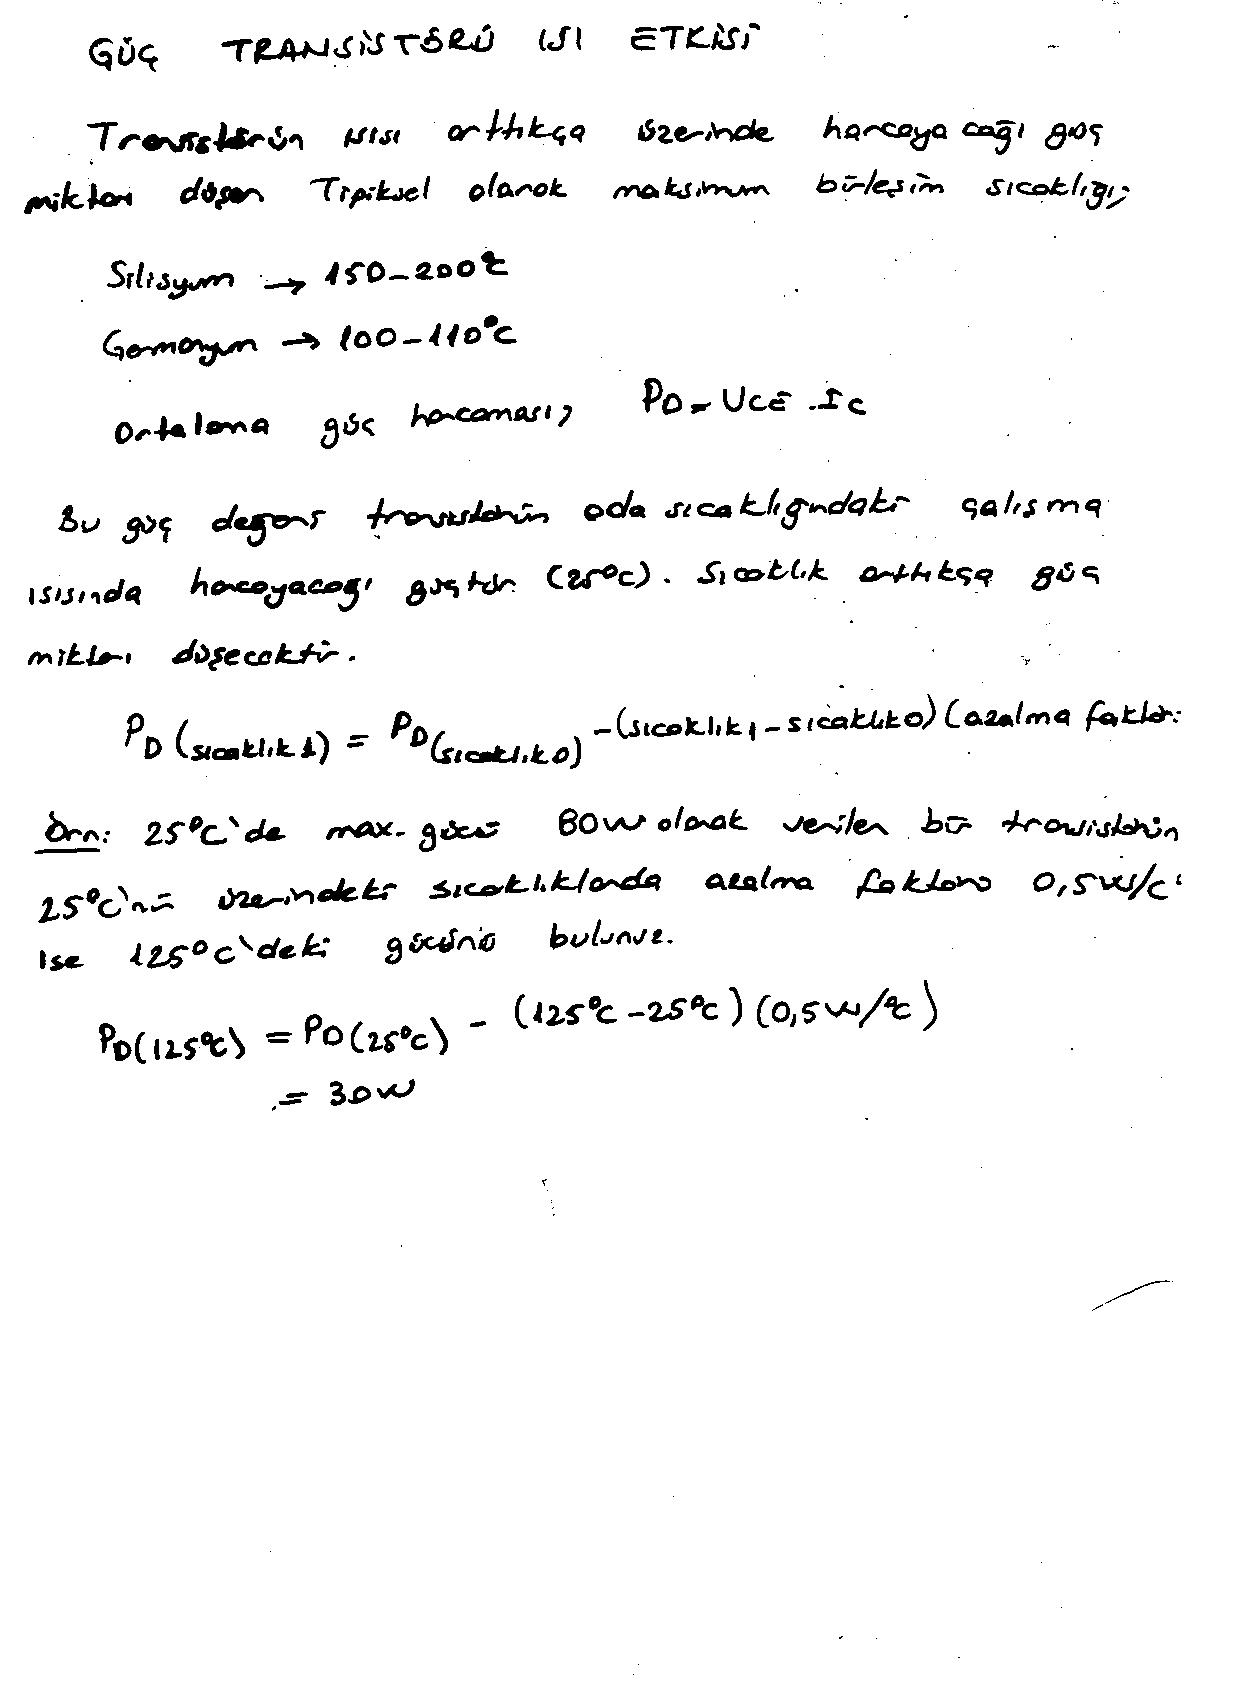 GÜÇ TRANSİSTÖRÜ ISI ETKİSİ
Transistörün ısısı arttıkça üzerinde harcayacağı güç
miktarı düşer. Tipiksel olarak maksimum birleşim sıcaklığı;
Silisyum → 150-200°C
Germanyum → 100-110°C
Ortalama güç harcaması; PD = UCE . IC
Bu güç değeri transistörün oda sıcaklığındaki çalışma
ısısında harcayacağı güçtür (25°C). Sıcaklık arttıkça güç
miktarı düşecektir.
PD (sıcaklık1) = PD (sıcaklık0) - (sıcaklık1 - sıcaklık0) (azalma faktör:
Örn: 25°C'de max. gücü 80W olarak verilen bir transistörün
25°C'nin üzerindeki sıcaklıklarda azalma faktörü 0,5W/C'
ise 125°C'deki gücünü bulunuz.
PD(125°C) = PD(25°C) - (125°C - 25°C) (0,5W/°C)
= 30W